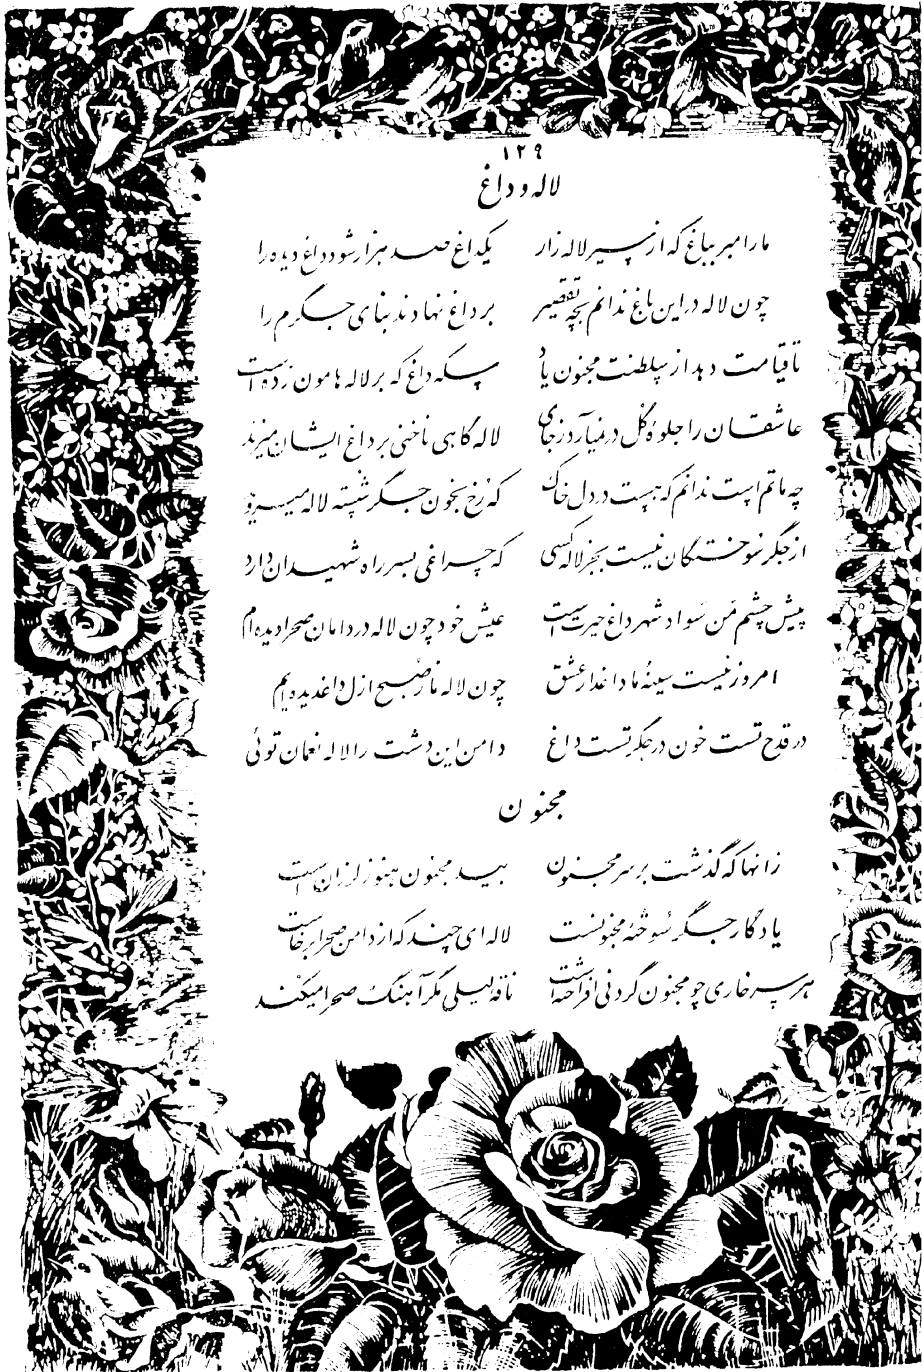 ۱۲۹
لاله و داغ
ما را مبر بباغ که از سیر لاله زار یکداغ صد هزار شود داغ دیده را
چون لاله در این باغ ندانم بچه تقصیر بر داغ نهادند بنای جگرم را
تا قیامت دهد از سلطنت مجنون یاد سکه داغ که بر لاله هامون زده است
عاشقان را جلوهٔ گل در نمیآرد ز جای لاله گاهی ناخنی بر داغ ایشان میزند
چه ماتم است ندانم که هست در دل خاک که رخ بخون جگر شسته لاله میروید
از جگر سوختگان نیست بجز لاله کسی که چراغی بسر راه شهیدان دارد
پیش چشم من سواد شهر داغ حیرت است عیش خود چون لاله در دامان صحرا دیده ام
امروز نیست سینهٔ ما داغدار عشق چون لاله ما ز صبح ازل داغدیده ایم
در قدح تست خون در جگر تست داغ دامن این دشت را لاله نعمان توئی
مجنون
زانها که گذشت بر سر مجنون بید مجنون هنوز لرزان است
یادگار جگر سوختهٔ مجنونست لاله ای چند که از دامن صحرا برخاست
هر سر خاری چو مجنون گردنی افراخته است ناقه لیلی مگر آهنگ صحرا میکند